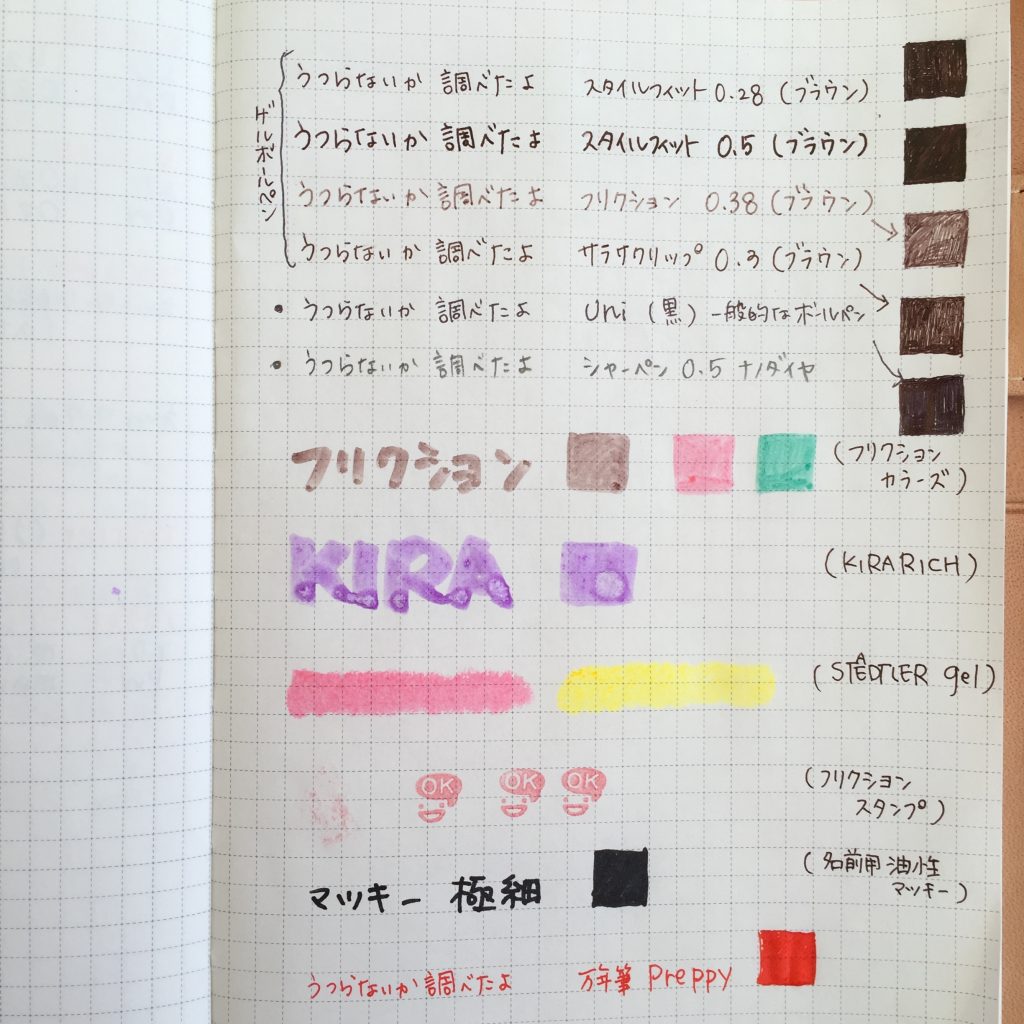 ゲルボールペン
うつらないか 調べたよ スタイルフィット 0.28 (ブラウン)
うつらないか 調べたよ スタイルフィット 0.5 (ブラウン)
うつらないか 調べたよ フリクション 0.38 (ブラウン)
うつらないか 調べたよ サラサクリップ 0.3 (ブラウン)
• うつらないか 調べたよ uni (黒) 一般的なボールペン
• うつらないか 調べたよ シャーペン 0.5 ナノダイヤ
フリクション
(フリクション
カラーズ)
KIRA
(KIRARICH)
(STÆDTLER gel)
OK OK OK
(フリクション
スタンプ)
マッキー 極細
(名前用油性
マッキー)
うつらないか調べたよ 万年筆 Preppy